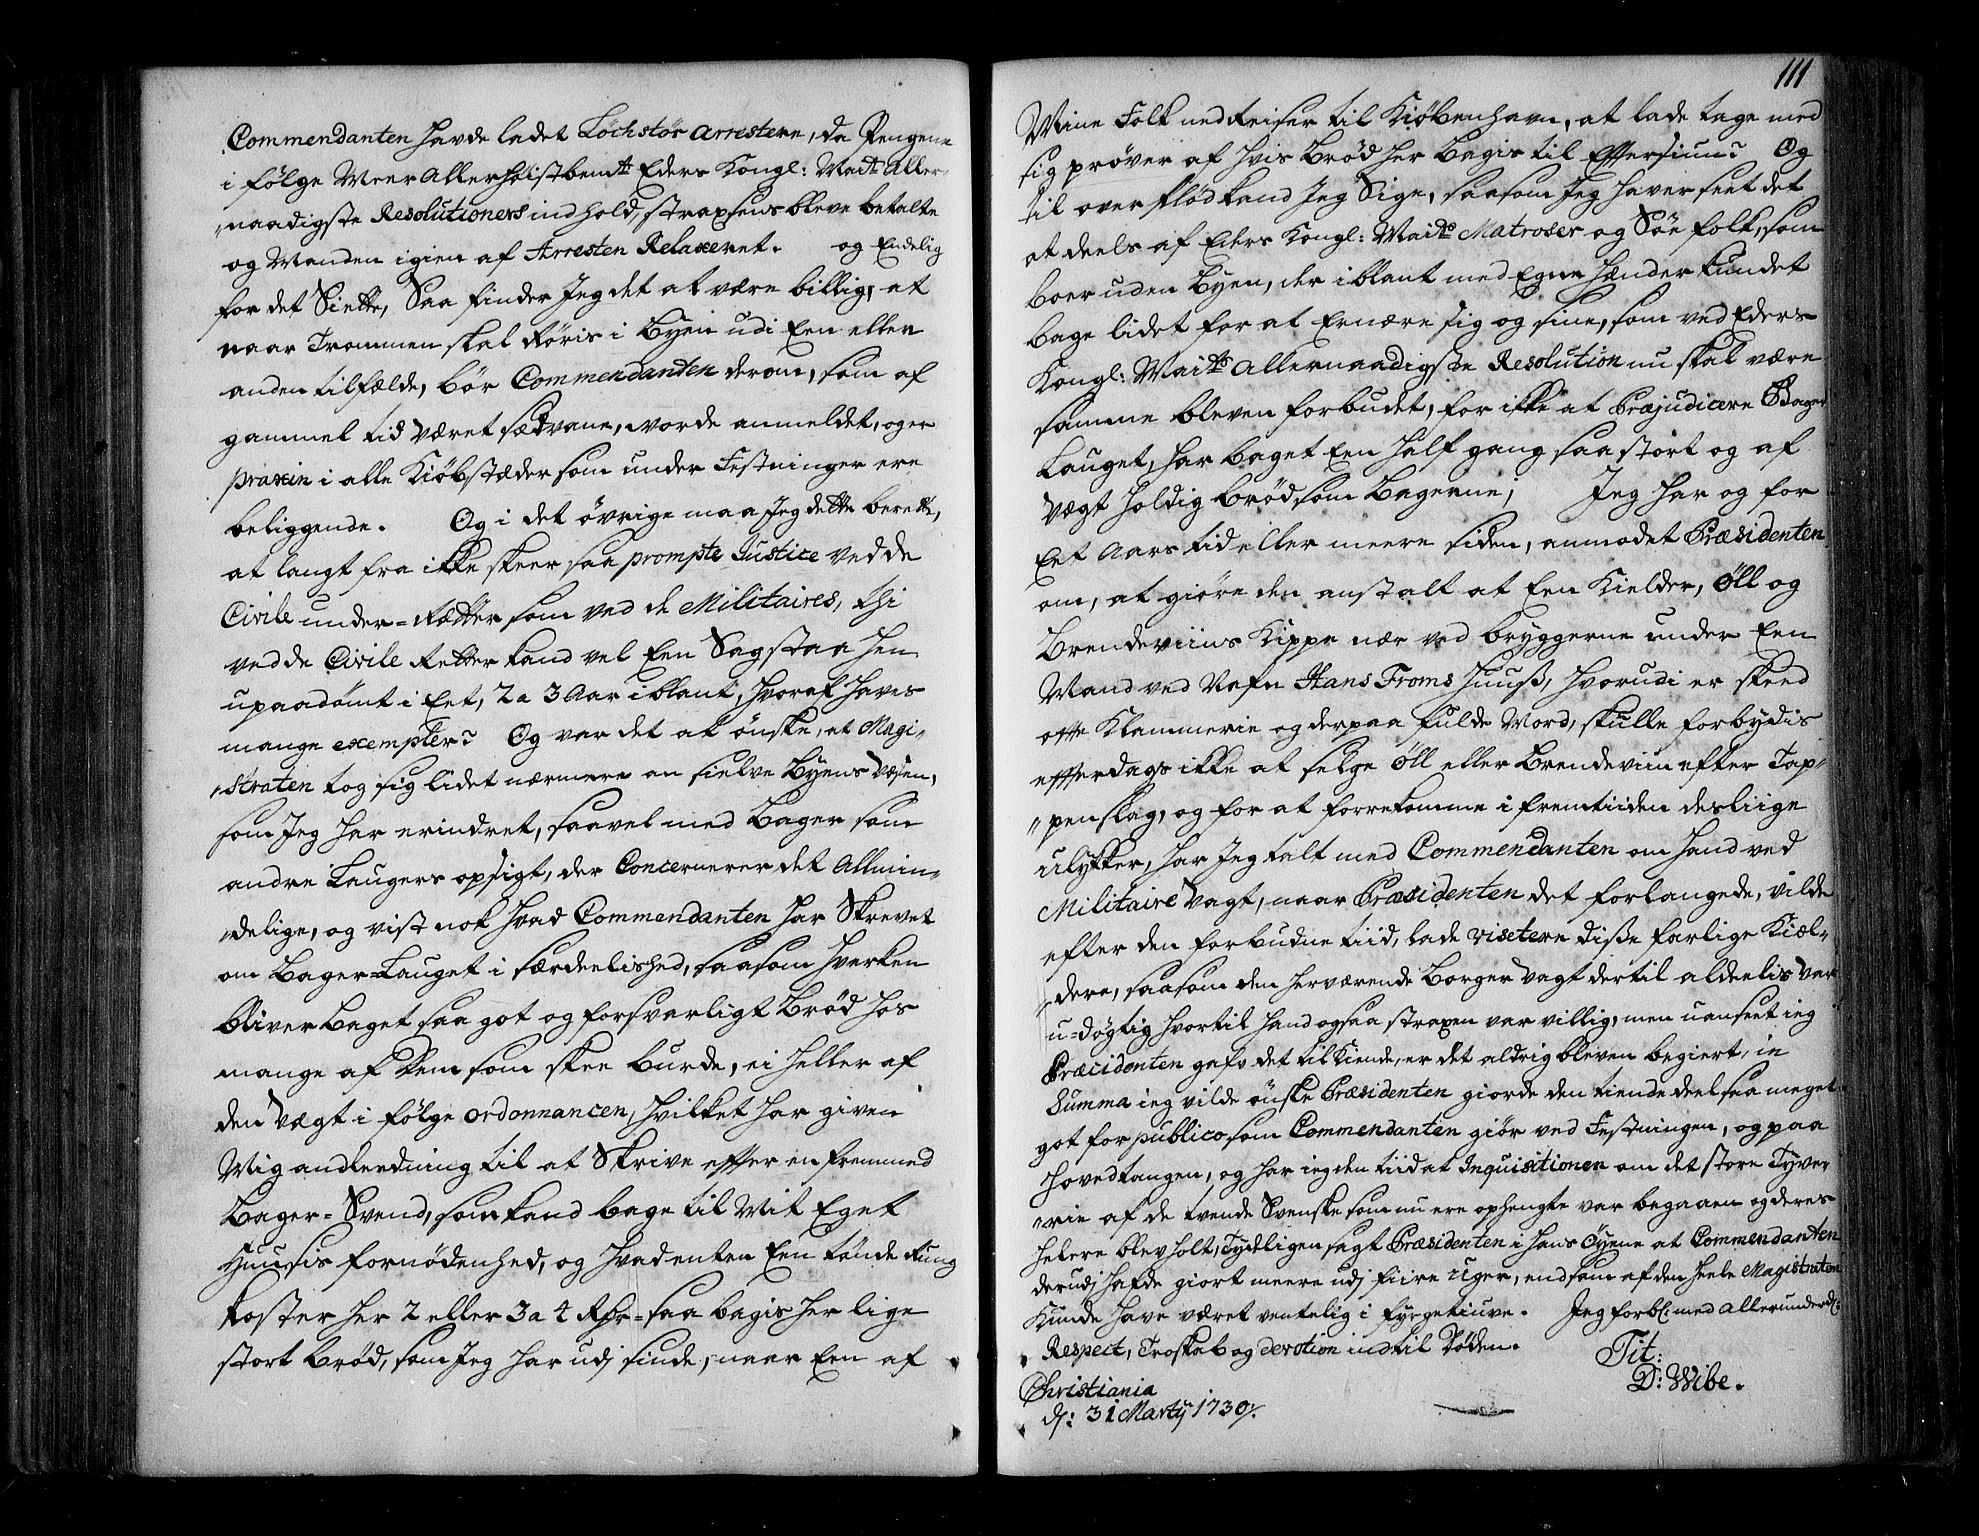 Commendanten havde ladet Löchstör Arrestere, da Pengene
i følge Meer Allerhöistbemte Eders Kongl: Maits Aller-
naadigste Resolutioners indhold, straxsens bleve betalte
og Manden igien af Arresten Relaxeret. og Endelig
for det Siette, Saa finder Jeg det at være billig, at
naar Trommen skal Røris i Byen udi Een eller
anden tilfælde, bør Commendanten derom, som af
gammel tid været sædvane, vorde anmeldet, og er
praxin i alle Kiøbstæder som under Festninger ere
beliggende. Og i det øvrige maa Jeg dette berette,
at langt fra ikke skeer saa prompte Justice ved de
Civile under-Rætter som ved de Militaires, thi
ved de Civile Retter kand vel Een Sag staa hen
upaadømt i Eet, 2 a 3 Aar iblant, hvoraf havis
mange exempler? Og var det at ønske, at Magi-
straten tog sig lidet nærmere an sielve Byens Væsen,
som Jeg har erindret, saavel med Bager som
andre Laugers opsigt, der Concernerer det Allmin-
delige, og vist nok hvad Commendanten har Skrevet
om Bager-Lauget i særdeelished, saasom hverken
bliver Baget saa got og forsvarligt Brød hos
mange af Dem som skee burde, ei heller af
den Vægt i følge ordonnancen, hvilket har given
Mig andleedning til at Skrive effter en fremmed
Bager-Svend, som kand bage til Mit Eget
Huusis fornødenhed, og hvad enten Een tønde Rung
koster her 2 eller 3 a 4 Rdr-saa bagis her lige
stort brød, som Jeg har udj sinde, naar Een af
111
Mine Folk ned Reiser til Kiøbenhavn, at lade tage med
sig prøver af hvis Brød her Bagis til Effersium? Og
til overflød kand Jeg Sige, saasom Jeg haver seet det
at deels af Eders Kongl: Maits Matroser og Söe folk, som
boer uden Byen, der iblant med Egne hænder kundet
bage lidet for at Ernære sig og sine, som ved Eders
Kongl: Maits Allernaadigste Resolution nu skal være
samme bleven forbudet, for ikke at Præjudicere Bager
Lauget, har baget Een half gang saa stort og af
Vægt holdig brød som Bagerne; Jeg har og for
Eet Aars tid eller meere siden, anmodet Præsidenten
om, at giøre den anstalt at Een Kielder, Öll og
Brendeviins Kippe nær ved bryggerne under Een
Mand ved Nafn Hans Froms Huuß, hvorudi er skeed
otte Klammerie og derpaa fulde Mord, skulle forbydis
effterdags ikke at selge Öll eller Brendeviin efter Tap-
penslag, og for at forrekomme i fremtiiden desliige
ulykker, har Jeg talt med Commendanten om hand ved
Militaire Vagt, naar Præsidenten det forlangede, vilde
efter den forbudne tiid, lade visetere diße farlige Kiel-
dere, saasom den herværende Borger Vagt dertil aldeelis var
u-døgtig hvortil hand ogsaa straxen var villig, men uanseet ieg
Præcidenten gafv det til Kiende, er det aldrig bleven begiert, in
Summa ieg vilde ønske Præsidenten giorde den tiende deel saa meget
got for publico som Commendanten giör ved Festningen, og paa
Hovedtangen, og har ieg den tiid at Inquisitionen om det store Tyver-
rie af de tvende Svenske som nu ere ophengte var begaaen og deres
helere blev holt, Tydeligen sagt Præsidenten i hans Öyene at Commendanten
derudj hafde giort meere udj fiire Uger, end som af den heele Magistraten
Kunde have været ventelig i fyrgetiuve. Jeg forbl: med allerunderd:
Respect, Troskab og devotion indtil Døden.
Tit:
D: Wibe.
Christiania
dj: 31 Martij 1730/.